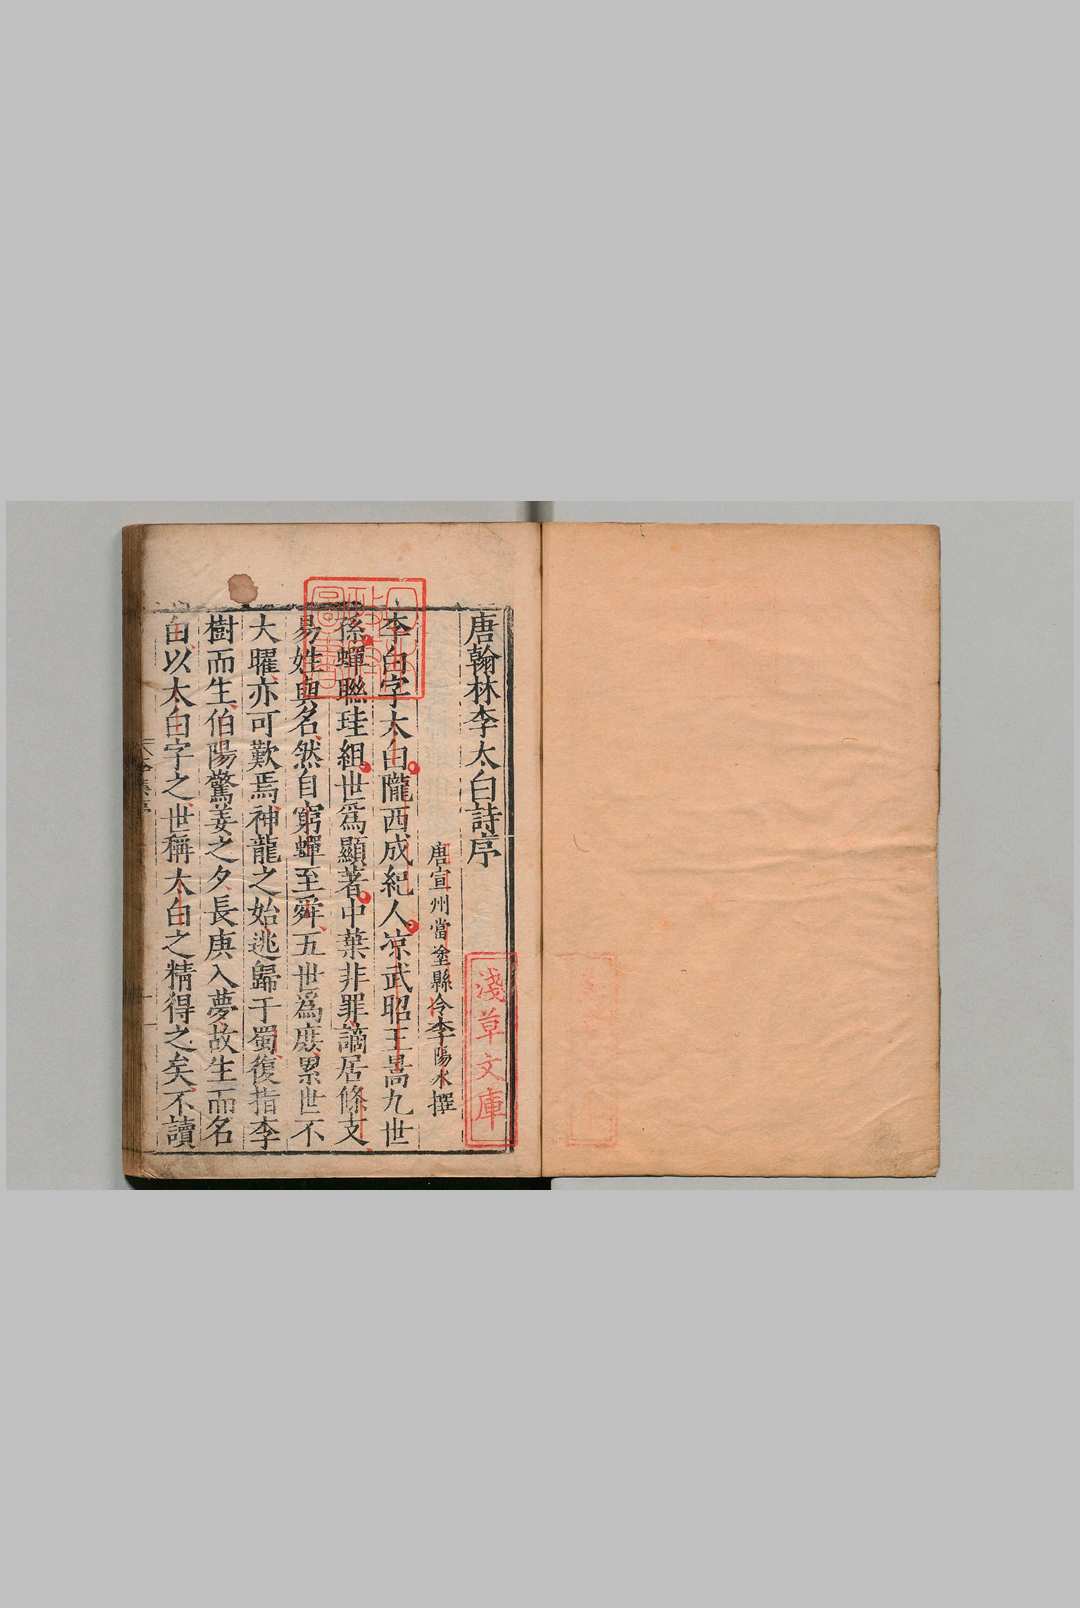 唐翰林李太白詩序
唐宣州當塗縣令李陽冰撰
李白字太白隴西成紀人凉武昭王暠九世
孫蟬聯珪組世爲顯著中葉非罪謫居條支
易姓與名然自窮蟬至舜五世爲庶累世不
大曜亦可歎焉神龍之始逃歸于蜀復指李
樹而生伯陽驚姜之夕長庚入夢故生而名
白以太白字之世稱太白之精得之矣不讀
淺草文庫